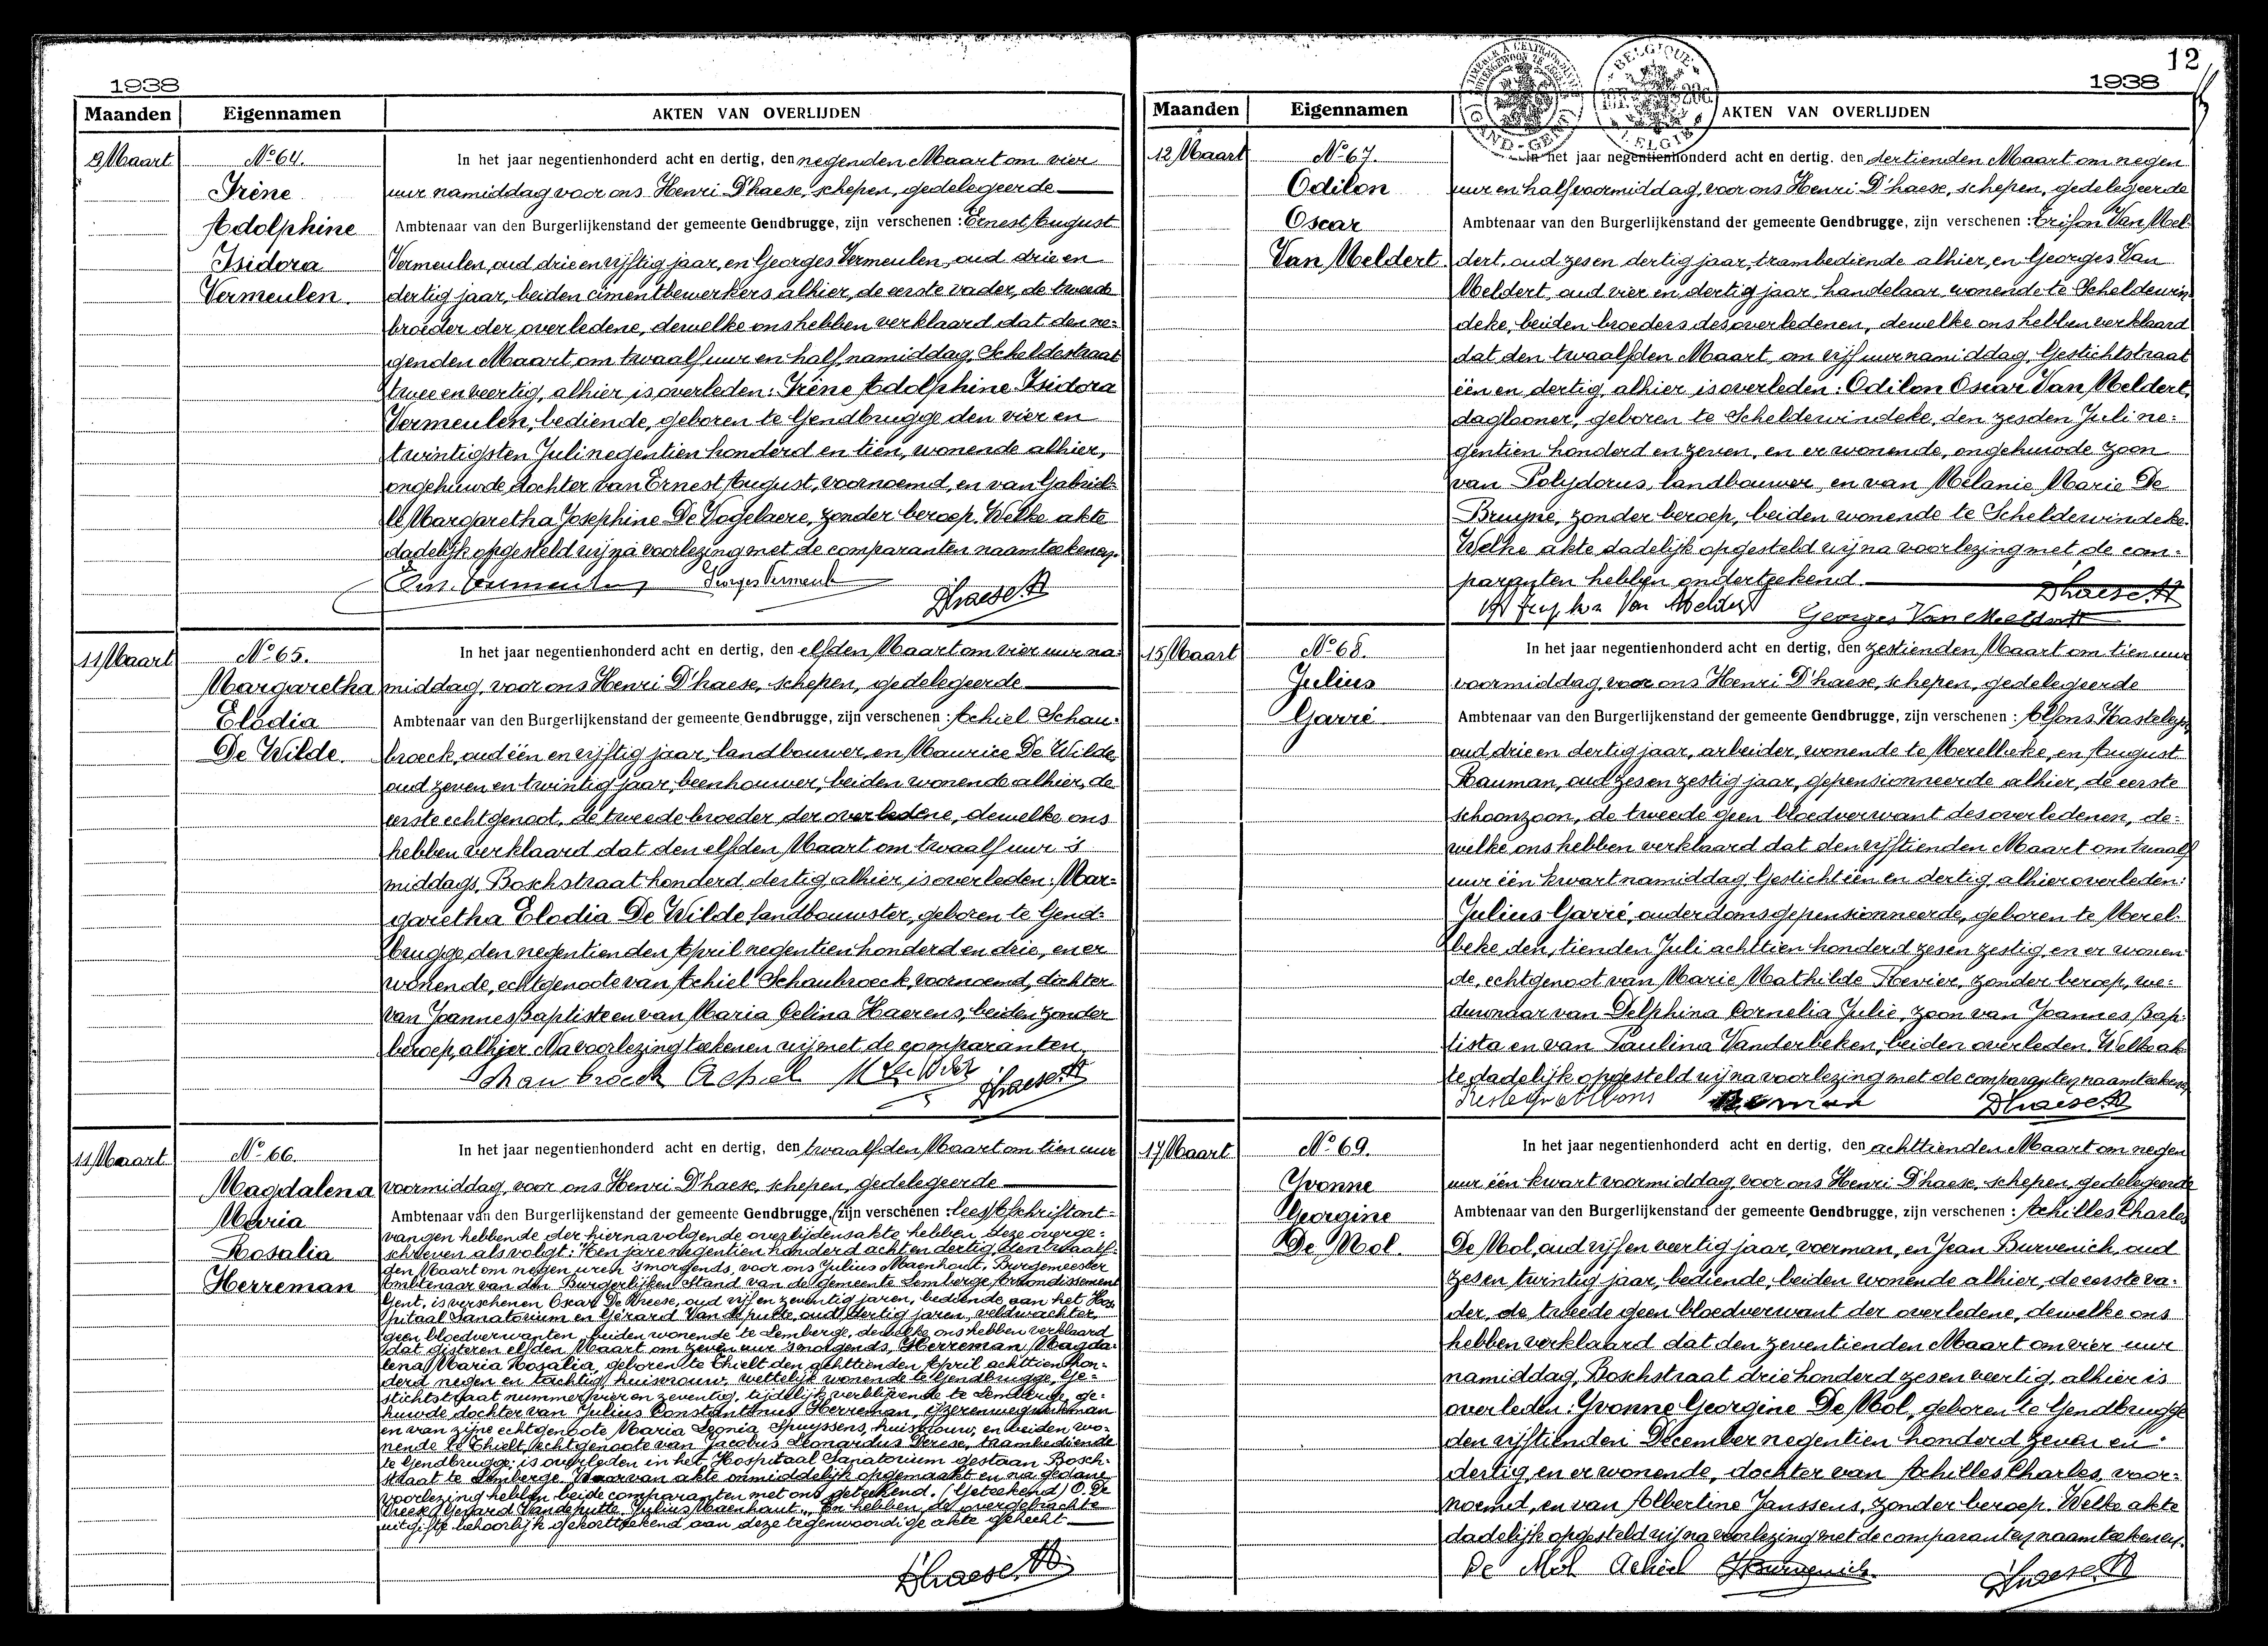 1938
Maanden Eigennamen AKTEN VAN OVERLIJDEN
9 Maart
No 64.
Irène
Adolphine
Isidora
Vermeulen.
In het jaar negentienhonderd acht en dertig, den negenden Maart om vier
uur namiddag voor ons Henri D'haese, schepen, gedelegeerde
Ambtenaar van den Burgerlijkenstand der gemeente Gendbrugge, zijn verschenen : Ernest August
Vermeulen, oud drie en vijftig jaar, en Georges Vermeulen, oud drie en
dertig jaar, beiden cimentbewerkers alhier, de eerste vader, de tweede
broeder der overledene, dewelke ons hebben verklaard dat den ne=
genden Maart, om twaalf uur en half namiddag, Scheldestraat
twee en veertig, alhier is overleden: Irène Adolphine Isidora
Vermeulen, bediende, geboren te Gendbrugge den vier en
twintigsten Juli negentien honderd en tien, wonende alhier,
ongehuwde dochter van Ernest August, voornoemd, en van Gabriel=
le Margaretha Josephine De Vogelaere, zonder beroep. Welke akte
dadelijk opgesteld wij na voorlezing met de comparanten naamteekenen.
Ern. Vermeulen Georges Vermeule
Dhaese H
11 Maart
No 65.
Margaretha
Elodia
De Wilde.
In het jaar negentienhonderd acht en dertig, den elfden Maart om vier uur na=
middag, voor ons Henri D'haese, schepen, gedelegeerde
Ambtenaar van den Burgerlijkenstand der gemeente Gendbrugge, zijn verschenen : Achiel Schau=
broeck, oud één en vijftig jaar, landbouwer, en Maurice De Wilde,
oud zeven en twintig jaar, beenhouwer, beiden wonende alhier, de
eerste echtgenoot, de tweede broeder der overledene, dewelke ons
hebben verklaard dat den elfden Maart om twaalf uur 's
middags, Boschstraat honderd dertig, alhier is overleden: Mar=
garetha Elodia De Wilde landbouwster, geboren te Gend=
brugge den negentienden April negentien honderd en drie, en er
wonende, echtgenoote van Achiel Schaubroeck, voornoemd, dochter
van Joannes Baptiste en van Maria Celina Haerens, beiden zonder
beroep, alhier. Na voorlezing teekenen wij met de comparanten.
Schaubroeck Achiel M De Wilde Dhaese H
11 Maart
No 66.
Magdalena
Maria
Rosalia
Herreman
In het jaar negentienhonderd acht en dertig, den twaalfden Maart om tien uur
voormiddag, voor ons Henri D'haese, schepen, gedelegeerde
Ambtenaar van den Burgerlijkenstand der gemeente Gendbrugge, (zijn verschenen : lees) afschrift ont=
vangen hebbende der hiernavolgende overlijdensakte hebben deze overge=
schreven als volgt: "Ten jare negentien honderd acht en dertig, den twaalf=
den Maart om negen uren 's morgends, voor ons Julius Maenhout, Burgemeester
Ambtenaar van den Burgerlijken Stand van de gemeente Lemberge, Arrondissement
Gent, is verschenen Oscar De Vreese, oud vijf en zeventig jaren, bediende aan het Hos=
pitaal Sanatorium en Gérard Van de putte, oud dertig jaren, veldwachter,
geen bloedverwanten, beiden wonende te Lemberge, dewelke ons hebben verklaard
dat gisteren elfden Maart om zeven uur 's morgends, Herreman Magda=
lena Maria Rosalia, geboren te Thielt den achttienden April achttien hon=
derd negen en tachtig, huisvrouw, wettelijk wonende te Gendbrugge, Ge=
stichtstraat nummer vier en zeventig, tijdelijk verblijvende te Lemberge, ge=
huwde dochter van Julius Constantinus Herreman, ijzerenwegwerkman
en van zijne echtgenoote Maria Leonia Spuyssens, huisvrouw, en beiden wo=
nende te Thielt, echtgenoote van Jacobus Leonardus Derese, trambediende
te Gendbrugge; is overleden in het Hospitaal Sanatorium gestaan Bosch=
straat te Lemberge. Waarvan akte onmiddelijk opgemaakt en na gedane
voorlezing hebben beide comparanten met ons geteekend. (Geteekend) O. De
Vreese, Gerard Vandeputte, Julius Maenhout." En hebben de overgebrachte
uitgifte behoorlijk gekortteekend aan deze tegenwoordige akte gehecht.
Dhaese H.
12
1938
Maanden Eigennamen AKTEN VAN OVERLIJDEN
GAND-GENT
BELGIQUE
BELGIE
12 Maart
No 67.
Odilon
Oscar
Van Meldert.
In het jaar negentienhonderd acht en dertig. den dertienden Maart om negen
uur en half voormiddag, voor ons Henri D'haese, schepen, gedelegeerde
Ambtenaar van den Burgerlijkenstand der gemeente Gendbrugge, zijn verschenen : Trifon Van Mel=
dert, oud zes en dertig jaar, trambediende alhier, en Georges Van
Meldert, oud vier en dertig jaar, handelaar, wonende te Scheldewin=
deke, beiden broeders des overledenen, dewelke ons hebben verklaard
dat den twaalfden Maart, om vijf uur namiddag, Gestichtstraat
één en dertig, alhier is overleden: Odilon Oscar Van Meldert,
daglooner, geboren te Scheldewindeke, den zesden Juli ne=
gentien honderd en zeven, en er wonende, ongehuwde zoon
van Polydorus, landbouwer, en van Mélanie Marie De
Bruyne, zonder beroep, beiden wonende te Scheldewindeke.
Welke akte dadelijk opgesteld wij na voorlezing met de com=
paranten hebben onderteekend.
Van Meldert Georges Van Meldert Dhaese H
15 Maart
No 68.
Julius
Garré
In het jaar negentienhonderd acht en dertig, den zestienden Maart om tien uur
voormiddag, voor ons Henri D'haese, schepen, gedelegeerde
Ambtenaar van den Burgerlijkenstand der gemeente Gendbrugge, zijn verschenen : Alfons Kasteleyn,
oud drie en dertig jaar, arbeider, wonende te Merelbeke, en August
Rauman, oud zes en zestig jaar, gepensionneerde alhier, de eerste
schoonzoon, de tweede geen bloedverwant des overledenen, de=
welke ons hebben verklaard dat den vijftienden Maart om twaalf
uur één kwart namiddag, Gesticht één en dertig, alhier overleden:
Julius Garré, ouderdomsgepensionneerde, geboren te Merel=
beke den tienden Juli achttien honderd zes en zestig, en er wonen=
de, echtgenoot van Marie Mathilde Revier, zonder beroep, we=
duwnaar van Delphina Cornelia Julie, zoon van Joannes Bap=
tista en van Paulina Vanderbeken, beiden overleden. Welke ak=
te dadelijk opgesteld wij na voorlezing met de comparanten naamteekenen.
Dhaese H
17 Maart
No 69.
Yvonne
Georgine
De Mol.
In het jaar negentienhonderd acht en dertig, den achttienden Maart om negen
uur één kwart voormiddag, voor ons Henri D'haese, schepen, gedelegeerde
Ambtenaar van den Burgerlijkenstand der gemeente Gendbrugge, zijn verschenen : Achilles Charles
De Mol, oud vijf en veertig jaar, voerman, en Jean Burvenich, oud
zes en twintig jaar, bediende, beiden wonende alhier, de eerste va=
der, de tweede geen bloedverwant der overledene, dewelke ons
hebben verklaard dat den zeventienden Maart om vier uur
namiddag, Boschstraat drie honderd zes en veertig, alhier is
overleden: Yvonne Georgine De Mol, geboren te Gendbrugge
den vijftienden December negentien honderd zeven en
dertig, en er wonende, dochter van Achilles Charles, voor=
noemd, en van Albertine Janssens, zonder beroep. Welke akte
dadelijk opgesteld wij na voorlezing met de comparanten naamteekenen.
De Mol Achiel JBurvenich Dhaese H